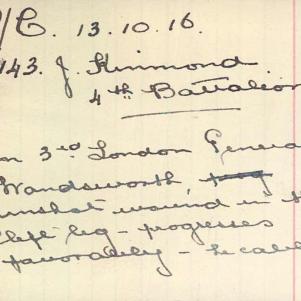 /C. 13.10.16.
143. J. Kinmond
4th Battalion
on 3rd London Genera
Wandsworth,
unshot wound in th
left leg - progresses
favorably - he calle